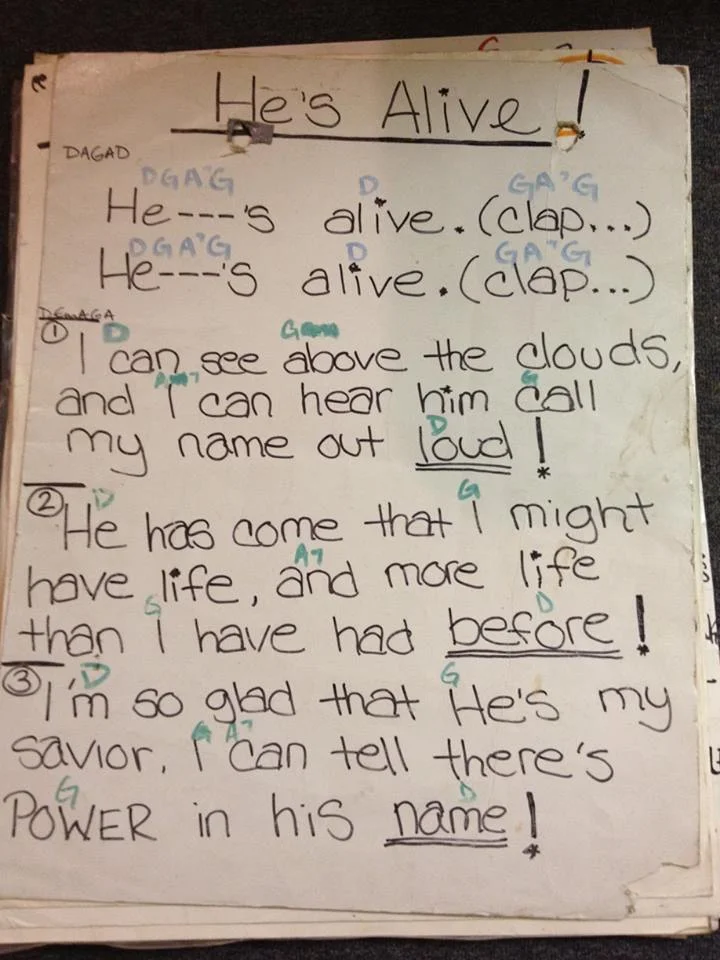 He's Alive!
DAGAD
DGA7G D GA7G
He---'s alive. (clap...)
DGA7G D GA7G
He---'s alive. (clap...)
① D G
I can see above the clouds,
and I can hear him call
G
D
my name out loud!
② D G
He has come that I might
A7
have life, and more life
G D
than I have had before!
③ D G
I'm so glad that He's my
G A7
savior. I can tell there's
G D
POWER in his name!